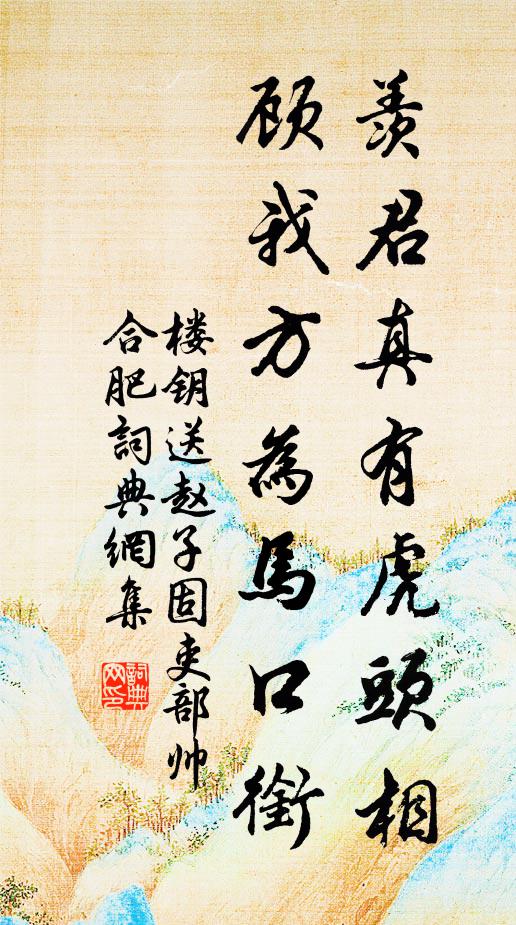 羨君真有虎頭相
顾我方為馬口銜
楼钥送赵子固吏部帅
合肥詞典網集
詞典
网印